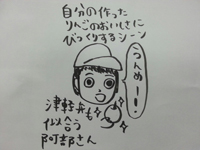 自分の作った
りんごのおいしさに
びっくりするシーン
うんめー!!
津軽弁も
似合う
阿部さん